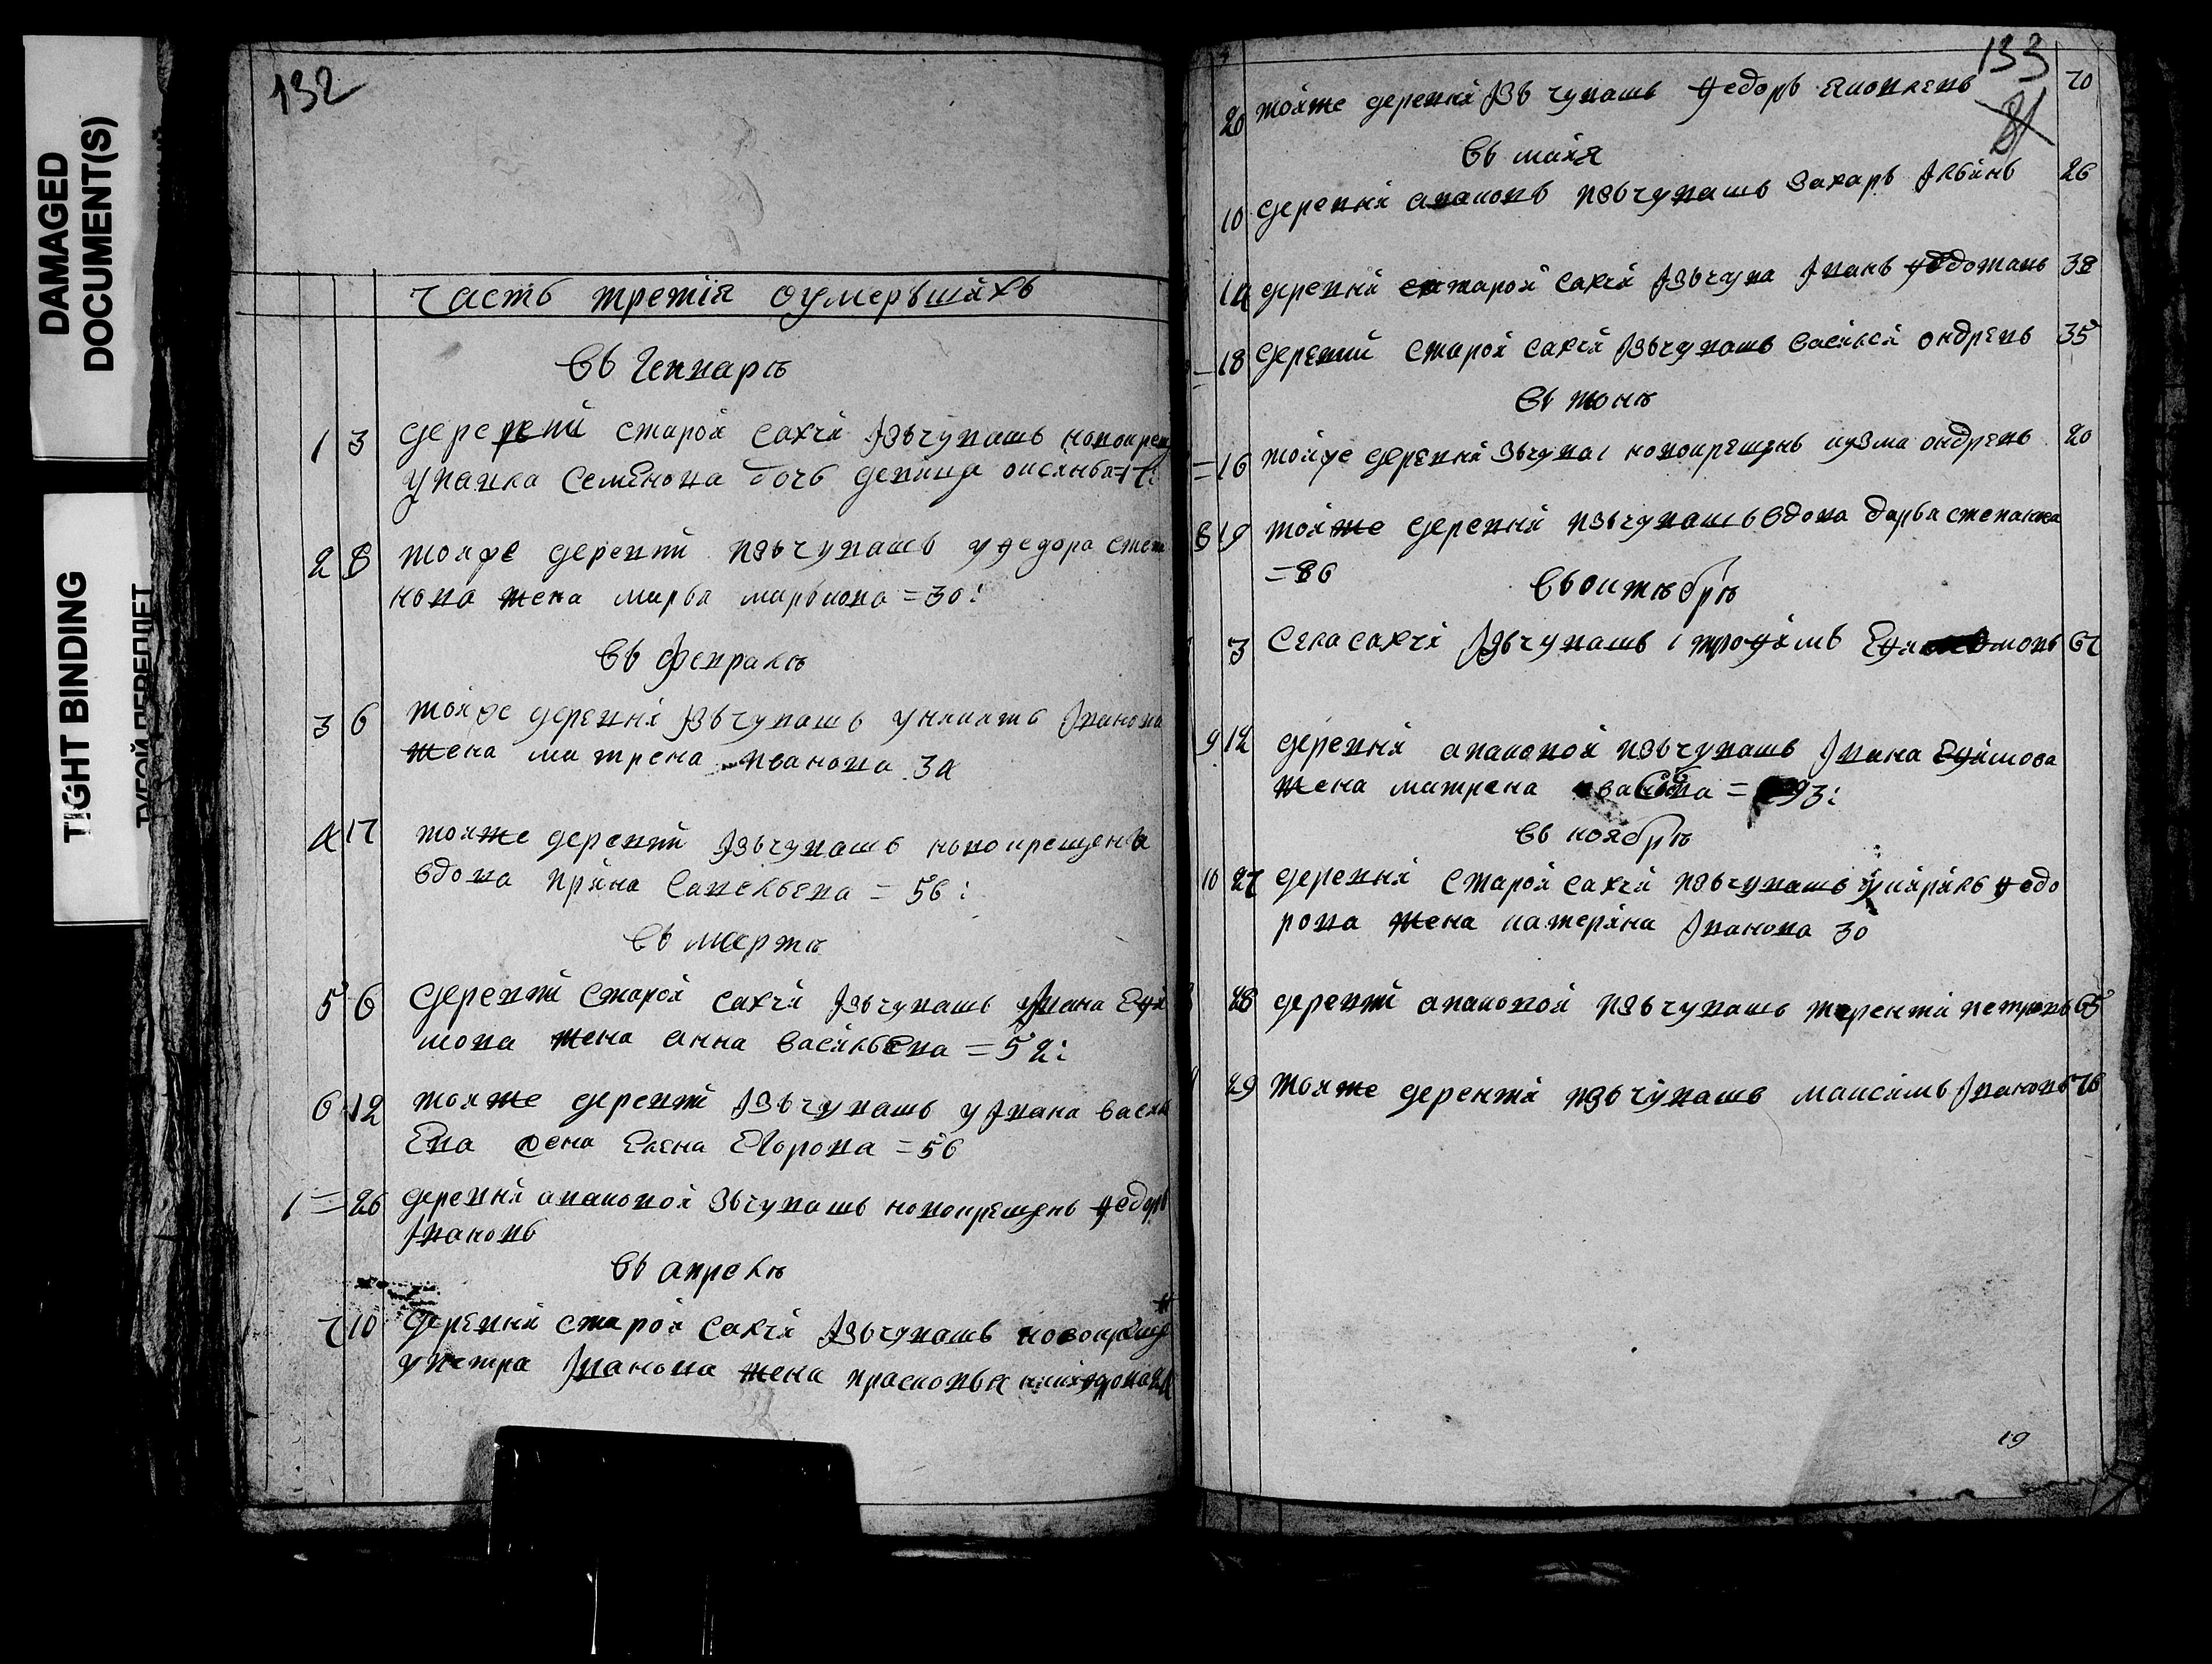 DAMAGED
DOCUMENT(S)
TIGHT BINDING
ТУГОЙ ПЕРЕПЛЕТ
132
часть третія оумершихъ
въ Генварѣ
1 3 деревни старой сахчи изъ чувашъ новокрещ
у Семенова дочь девица
2 8 тояже деревни изъ чувашъ у федора степа
нова жена марѳа маркова = 30:
въ февралѣ
3 6 тояже деревни изъ чувашъ у Iванова
жена матрена иванова 34
4 17 тояже деревни изъ чувашъ новокрещена
вдова ирина савельева = 56:
въ мартѣ
5 6 деревни старой сахчи изъ чувашъ Iвана Ефи
мова жена анна васильева = 52:
6 12 тояже деревни изъ чувашъ у Iвана васил
Ева жена Елена Егорова = 56
1 = 26 деревни апаковой зъ чувашъ новокрещенъ федоръ
Iвановъ
въ апрелѣ
7 10 деревни старой сахчи изъ чувашъ новокреще
у петра Iванова жена прасковья
133
81
20 тояже деревни изъ чувашъ федоръ яковлевъ 70
въ маия
10 деревни апаковъ изъ чувашъ захаръ 26
14 деревни старой сахчи изъ чува Iванъ 38
= 18 деревни старой сахчи изъ чувашъ василей ондревъ 35
въ июнѣ
= 16 тояже деревни зъ чува новокрещенъ кузма ондревъ 20
8 19 тояже деревни изъ чувашъ вдова дарья степанова
= 86
въ октябрѣ
3 села сахчи изъ чувашъ трофимъ 67
9 12 деревни апаковой изъ чувашъ Iвана Ефимова
жена матрена = 93:
въ ноябрѣ
10 27 деревни старой сахчи изъ чувашъ федо
рова жена катерина Iванова 30
28 деревни апаковой изъ чувашъ терентий петровъ 65
29 тояже деревни изъ чувашъ максимъ Iвановъ 76
19